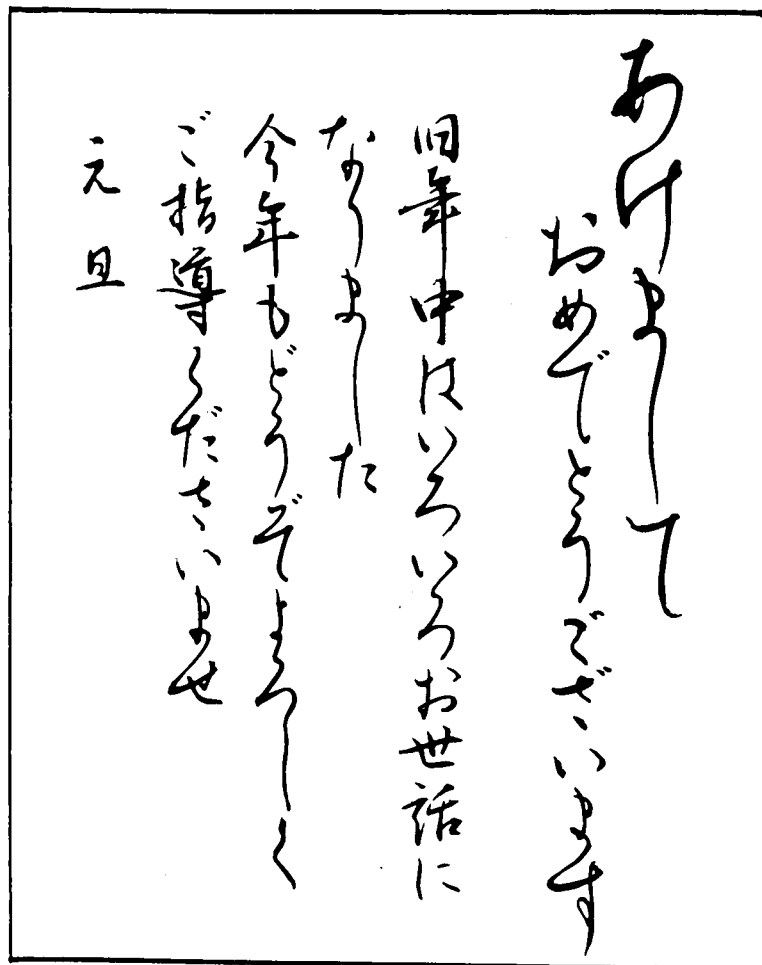 あけまして
おめでとうございます
旧年中はいろいろお世話に
なりました
今年もどうぞよろしく
ご指導くださいませ
元旦